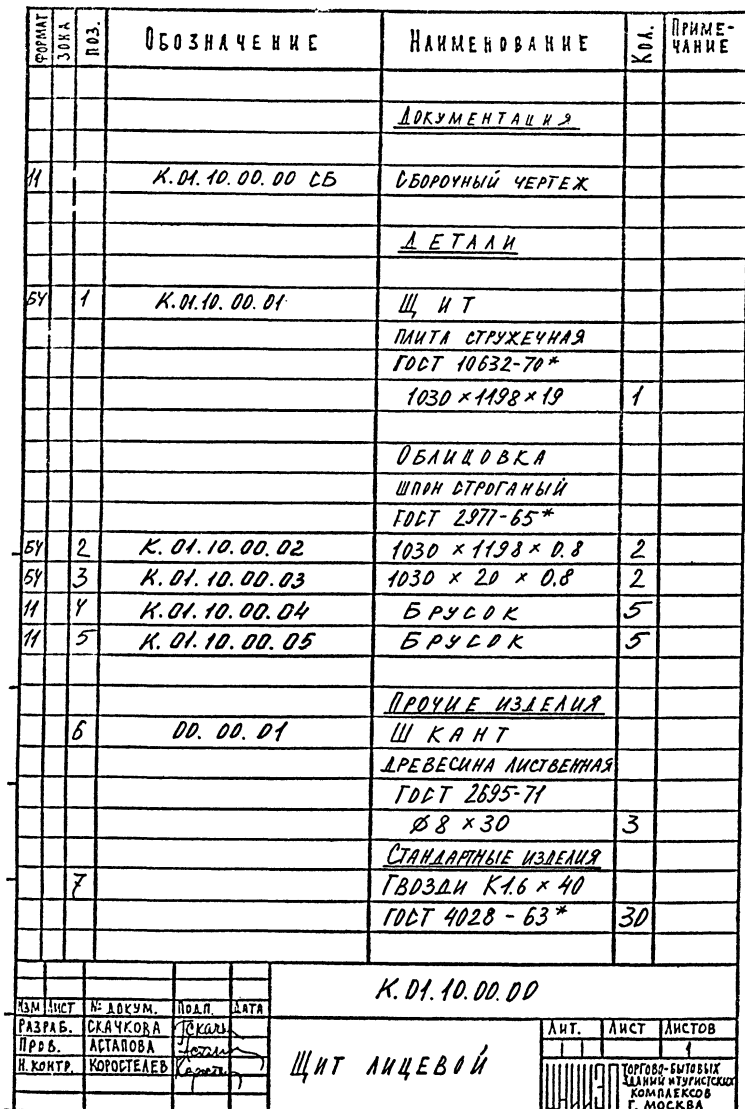 ФОРМАТ ЗОНА ПОЗ. ОБОЗНАЧЕНИЕ НАИМЕНОВАНИЕ КОЛ. ПРИМЕ-
ЧАНИЕ
ДОКУМЕНТАЦИЯ
11 К.01.10.00.00 СБ СБОРОЧНЫЙ ЧЕРТЕЖ
ДЕТАЛИ
БЧ 1 К.01.10.00.01 ЩИТ
ПЛИТА СТРУЖЕЧНАЯ
ГОСТ 10632-70*
1030 × 1198 × 19 1
ОБЛИЦОВКА
ШПОН СТРОГАНЫЙ
ГОСТ 2977-65*
БЧ 2 К.01.10.00.02 1030 × 1198 × 0.8 2
БЧ 3 К.01.10.00.03 1030 × 20 × 0.8 2
11 4 К.01.10.00.04 БРУСОК 5
11 5 К.01.10.00.05 БРУСОК 5
ПРОЧИЕ ИЗДЕЛИЯ
6 00.00.01 ШКАНТ
ДРЕВЕСИНА ЛИСТВЕННАЯ
ГОСТ 2695-71
Ø 8 × 30 3
СТАНДАРТНЫЕ ИЗДЕЛИЯ
7 ГВОЗДИ К1.6 × 40
ГОСТ 4028-63* 30
К.01.10.00.00
ИЗМ ЛИСТ № ДОКУМ. ПОДП. ДАТА
РАЗРАБ. СКАЧКОВА
ПРОВ. АСТАПОВА
Н.КОНТР. КОРОСТЕЛЕВ
ЩИТ ЛИЦЕВОЙ
ЛИТ. ЛИСТ ЛИСТОВ
1
ТОРГОВО-БЫТОВЫХ
ЗДАНИЙ И ТУРИСТСКИХ
КОМПЛЕКСОВ
Г. МОСКВА